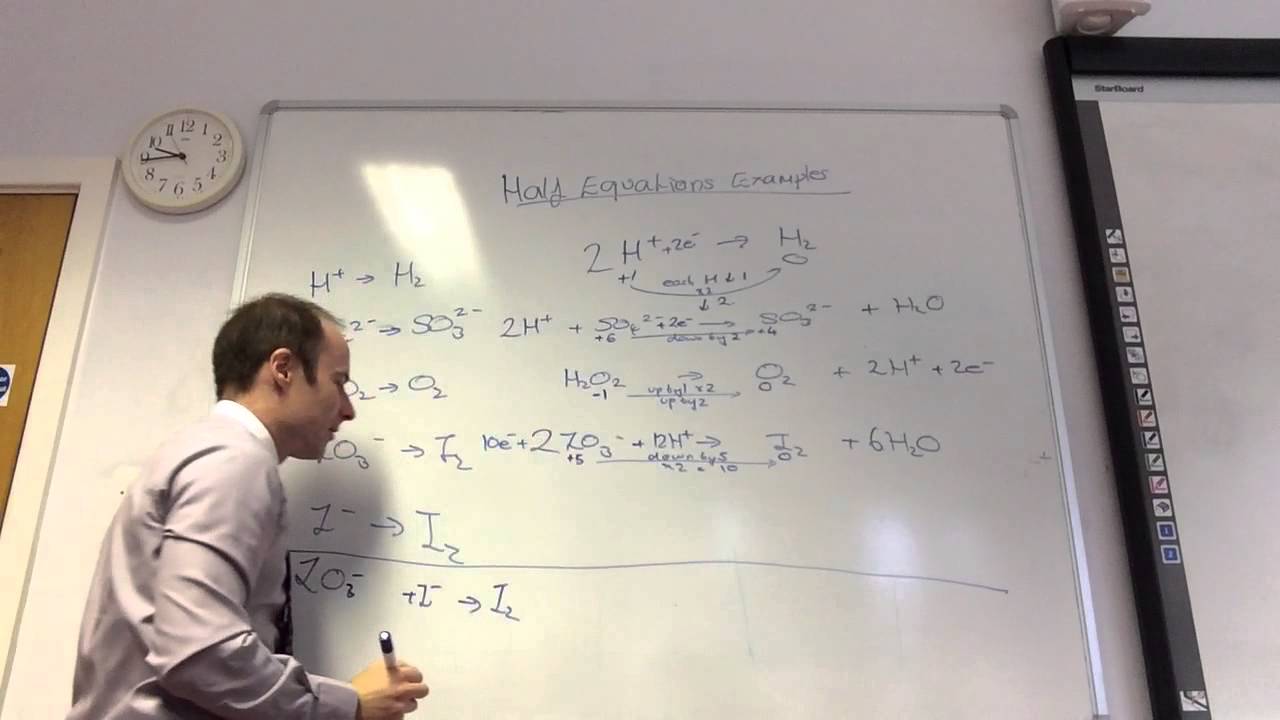 StarBoard
12 1 2 3 4 5 6 7 8 9 10 11
Half Equations Examples
2 H⁺ + 2e⁻ → H₂
+1 each H ↓ 1 0
x2
↓ 2
H⁺ → H₂
²⁻ → SO₃²⁻ 2H⁺ + SO₄²⁻ + 2e⁻ → SO₃²⁻ + H₂O
+6 down by 2 +4
O₂ → O₂ H₂O₂ → O₂ + 2H⁺ + 2e⁻
-1 up by 1 x2 0
up by 2
IO₃⁻ → I₂ 10e⁻ + 2 IO₃⁻ + 12H⁺ → I₂ + 6H₂O
+5 down by 5 0
x2 = 10
I⁻ → I₂
IO₃⁻ + I⁻ → I₂
1
2